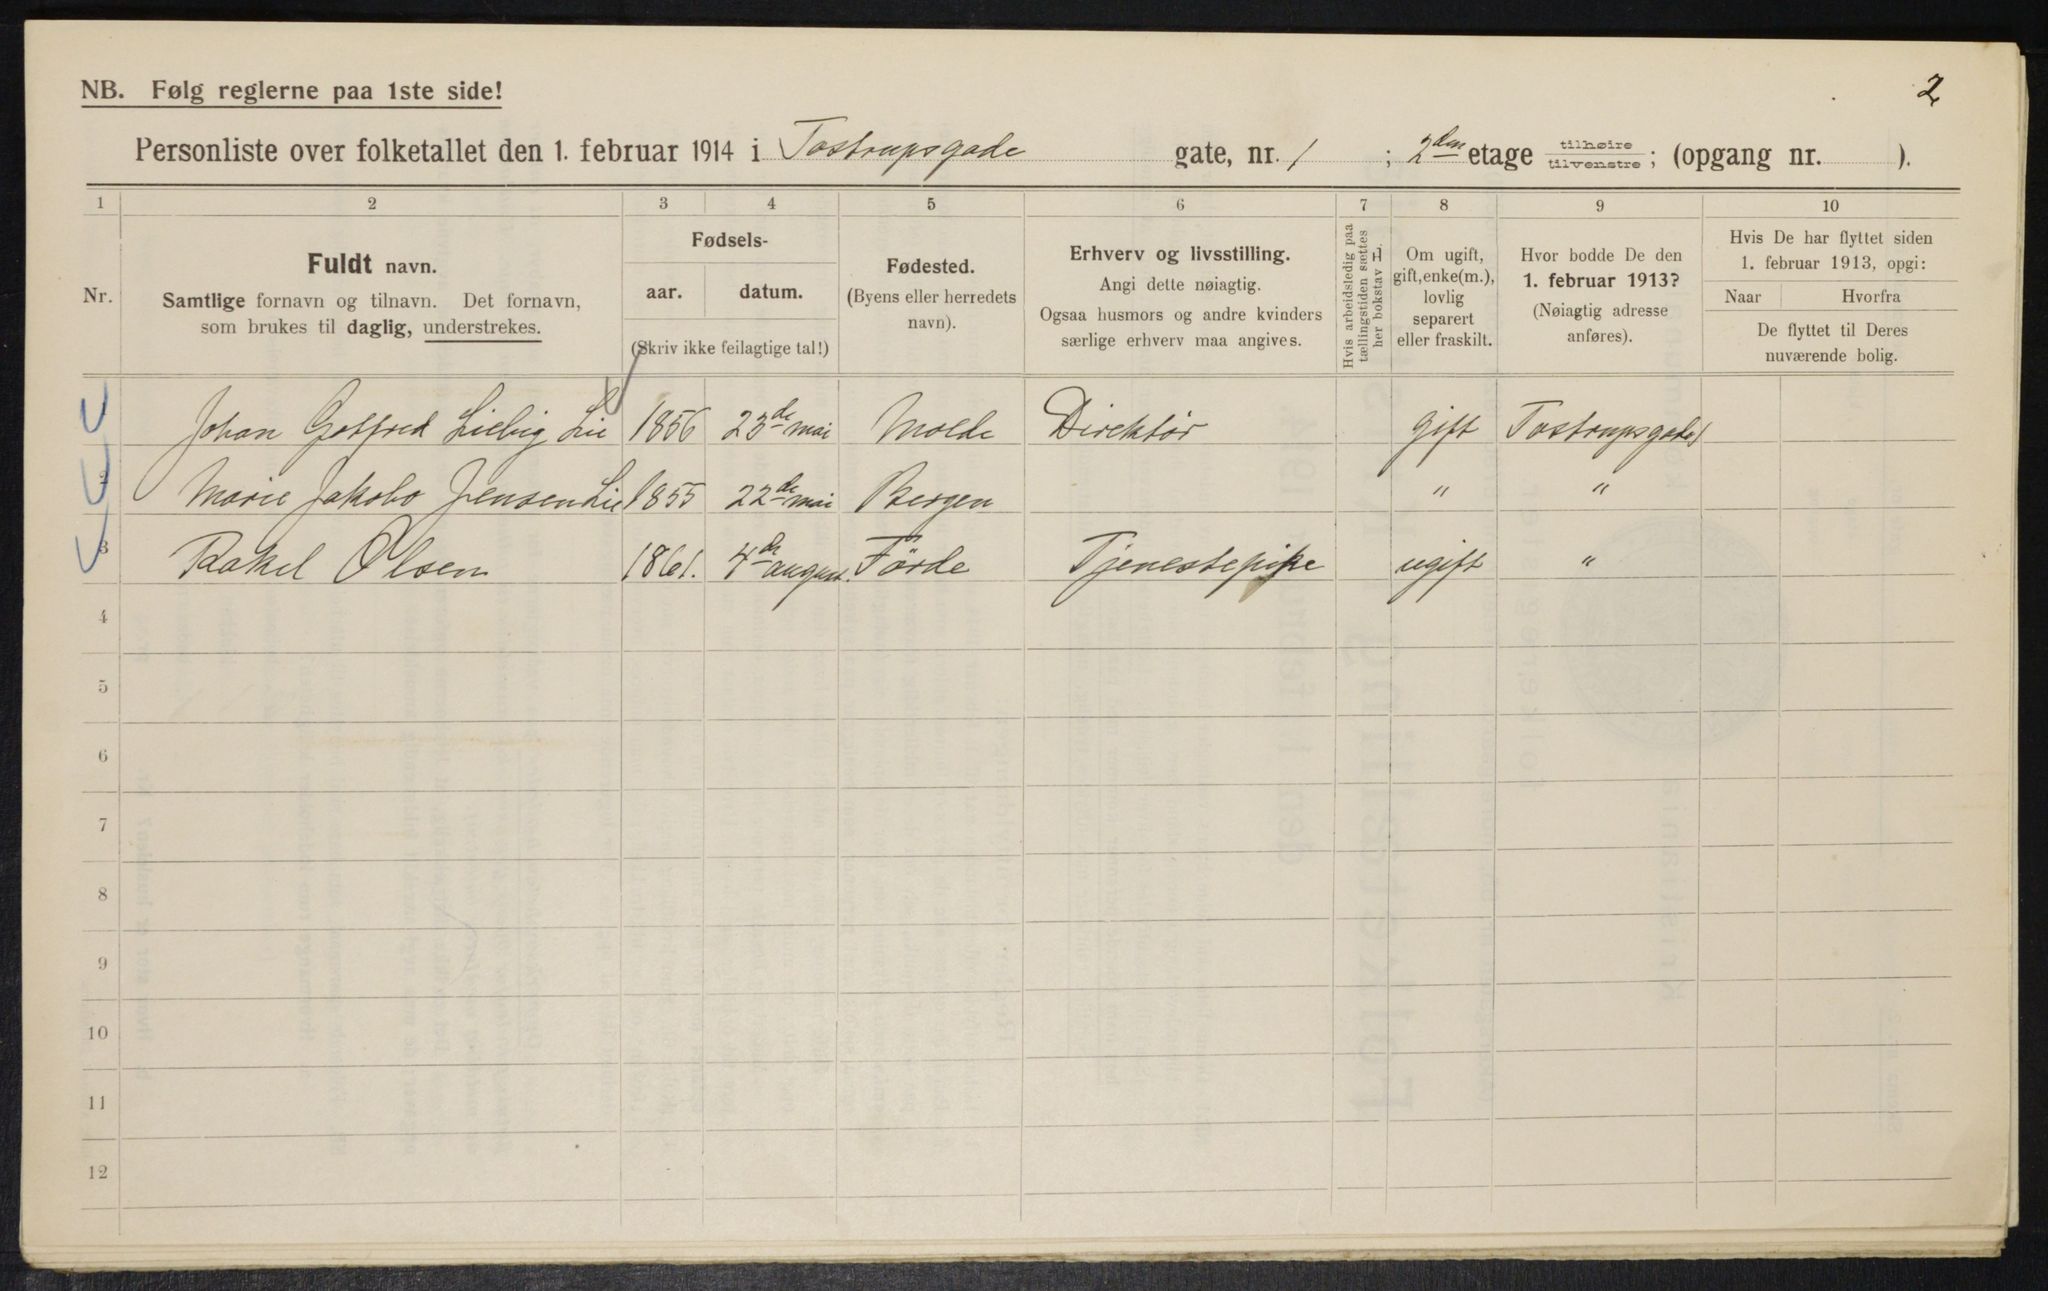 NB. Følg reglerne paa 1ste side!
2
Personliste over folketallet den 1. februar 1914 i Tostrupsgade gate, nr. 1 ; 2den etage tilhøire tilvenstre ; (opgang nr. ).
1 2 3 4 5 6 7 8 9 10
Nr.
Fuldt navn.
Samtlige fornavn og tilnavn. Det fornavn,
som brukes til daglig, understrekes.
Fødsels-
aar. datum.
(Skriv ikke feilagtige tal!)
Fødested.
(Byens eller herredets
navn).
Erhverv og livsstilling.
Angi dette nøiagtig.
Ogsaa husmors og andre kvinders
særlige erhverv maa angives.
Hvis arbeidsledig paa
tællingstiden sættes
her bokstav L.
Om ugift,
gift, enke(m.),
lovlig
separert
eller fraskilt.
Hvor bodde De den
1. februar 1913?
(Nøiagtig adresse
anføres).
Hvis De har flyttet siden
1. februar 1913, opgi:
Naar Hvorfra
De flyttet til Deres
nuværende bolig.
Johan Gotfred Liebig Lie 1856 23de mai Molde Direktør gift Tostrupsgade 1
2 Marie Jakobo Jensen Lie 1855 22de mai Bergen " "
3 Rakel Olsen 1861. 4de august. Förde Tjenestepike ugift "
4
5
6
7
8
9
10
11
12